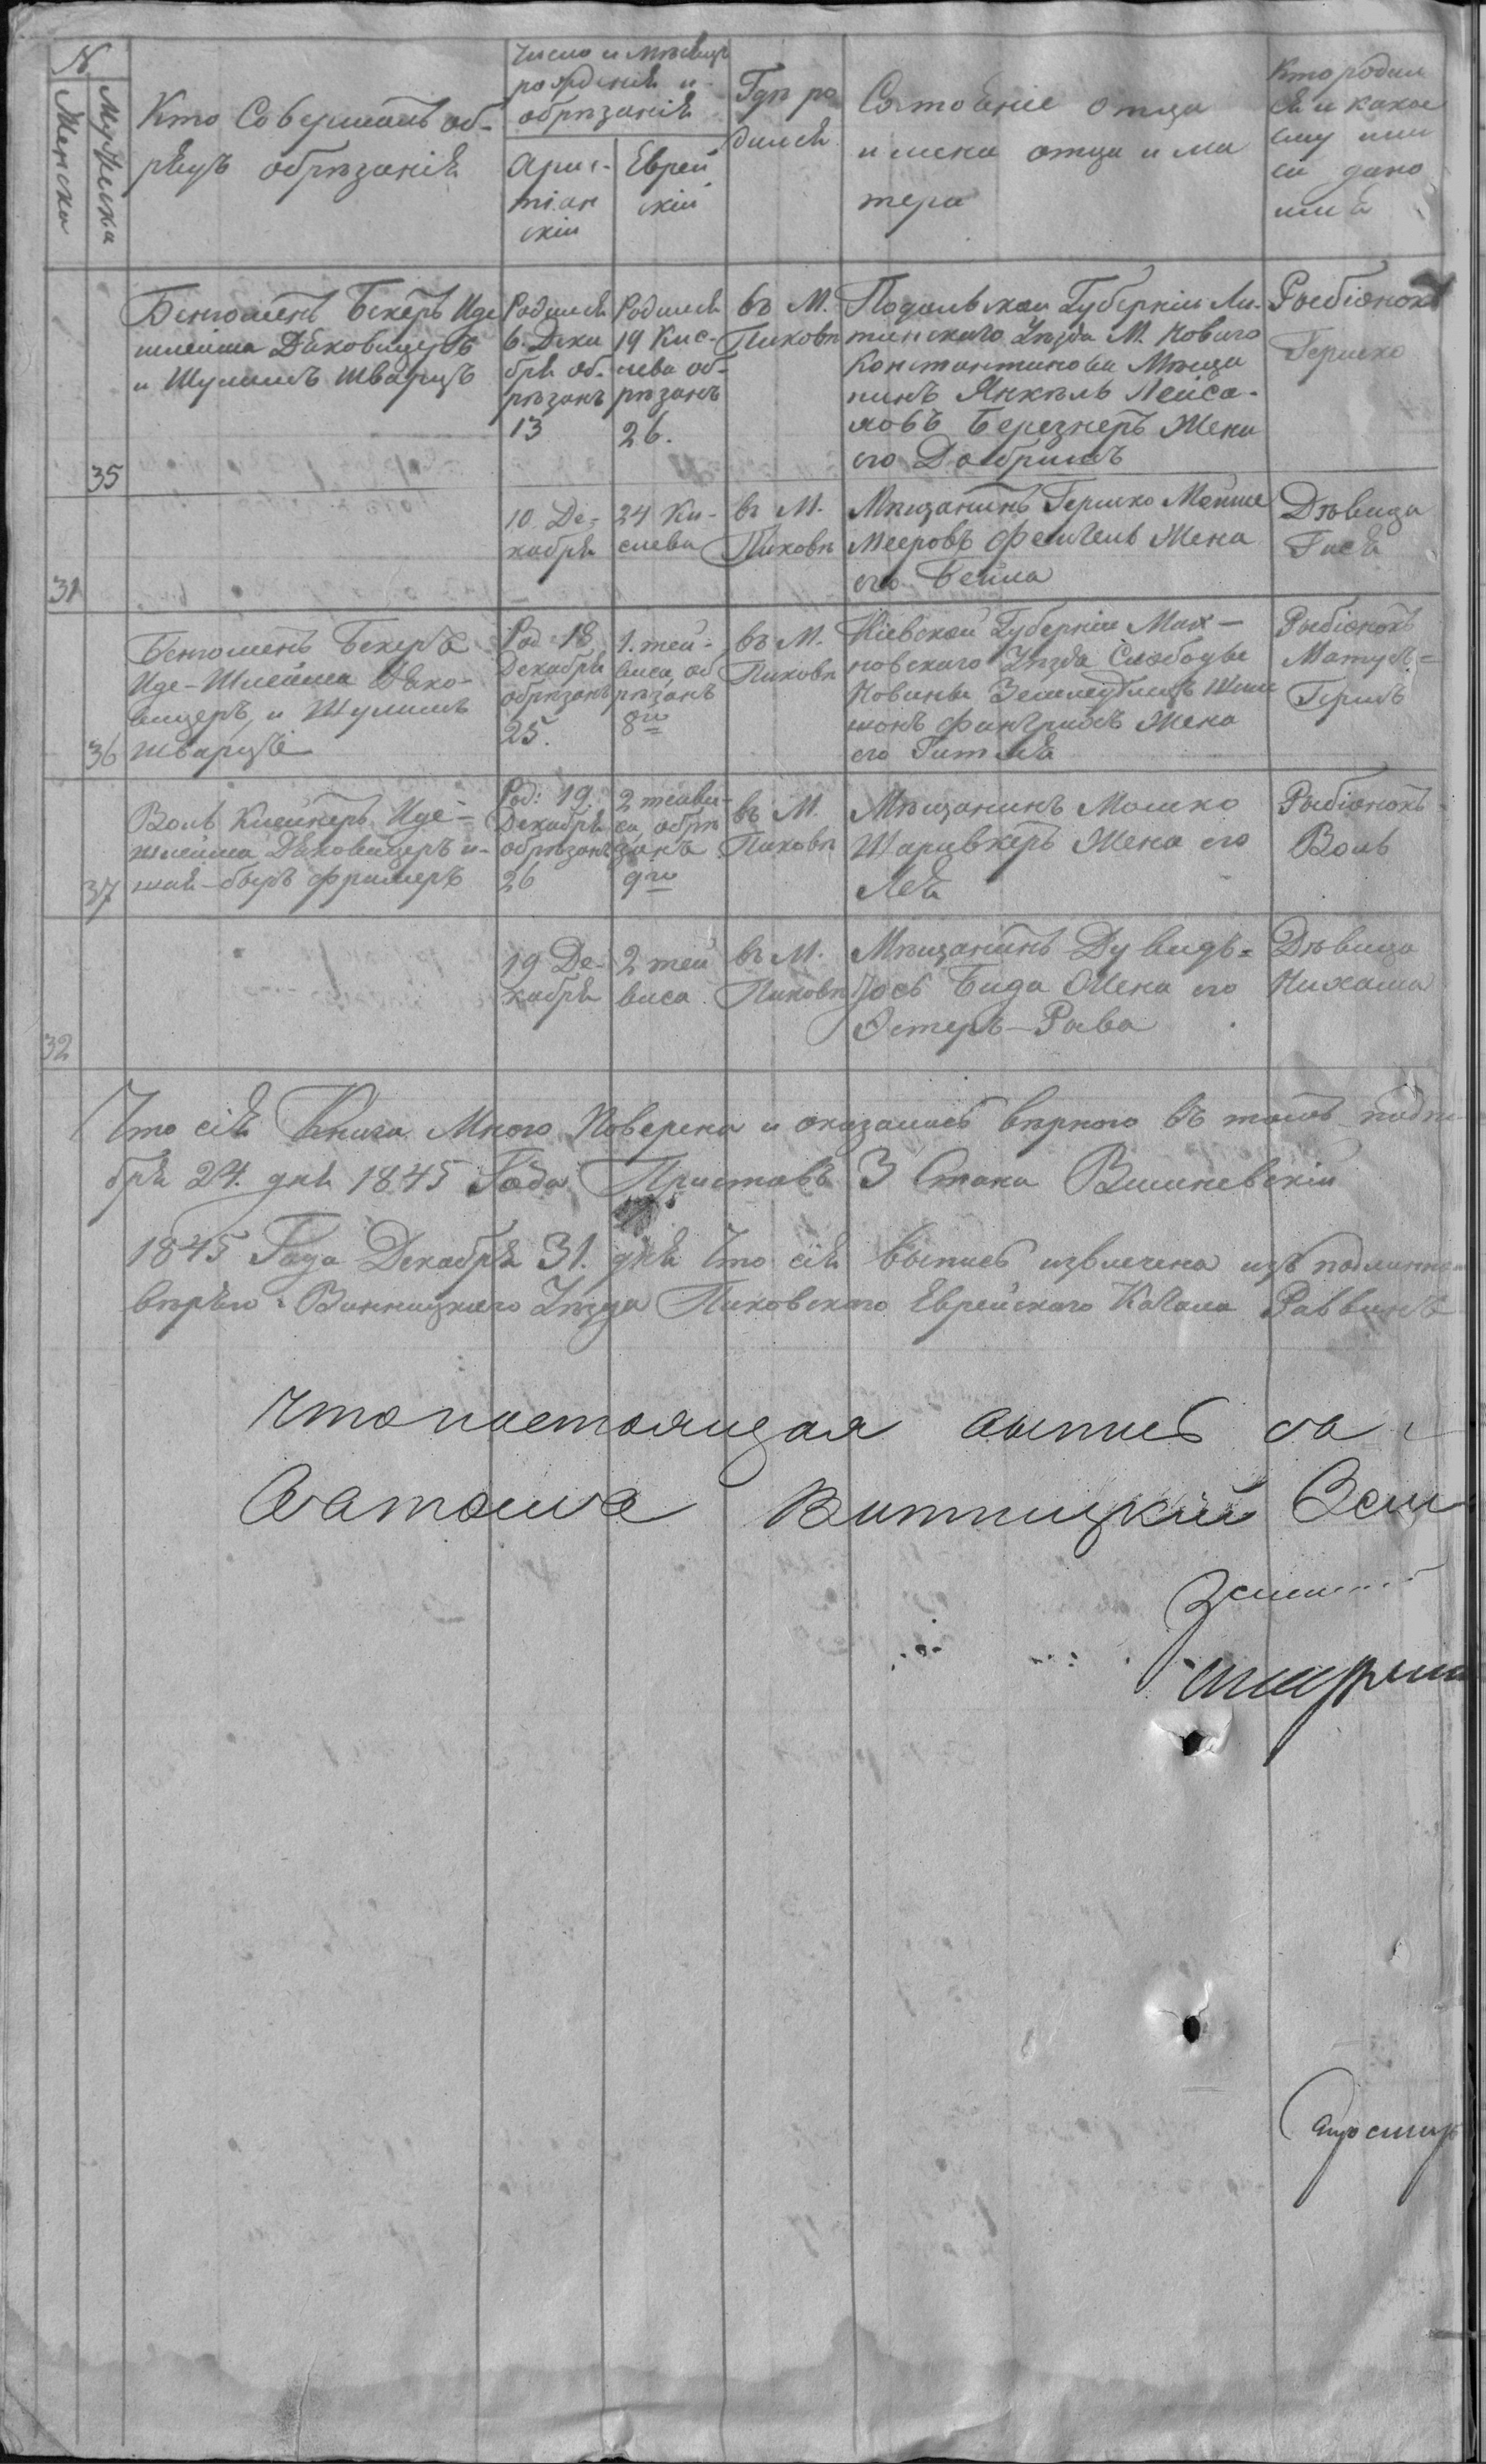 N
Женска
Мужеска
Кто Совершалъ об-
рядъ обрезанія
Число и мѣсяцъ
рожденія и
обрѣзанія
Христ-
тіан
скій
Еврей
скій
Гдѣ ро
дился
Состояніе отца
имена отца и ма
тери
Кто родил
ся и какое
ему или
ей дано
имя
35
Беніоменъ Бекеръ Иде
шлейма Дяковицеръ
и Шулимъ Шварцъ
Родился
6. Дека
бря об-
рѣзанъ
13
Родился
19 Кис-
лева об-
рѣзанъ
26.
въ М.
Пиковѣ
Подольской Губерніи Ли-
тинского Уѣзда М. Нового
Константинова Мѣща
нинъ Янкель Лейса-
ровъ Березнеръ Жена
его Добришъ
Ребіонокъ
Гершко
31
10 Де-
кабря
24 Ки-
слева
въ М.
Пиковѣ
Мѣщанинъ Гершко Мошко
Мееровъ Фейгель Жена
его Бейла
Дѣвица
Гися
36
Беніоменъ Бекеръ
Иде-Шлейма Дяко-
вицеръ, и Шулимъ
Шварцъ
Род: 18
Декабря
обрѣзанъ
25.
1. тей-
виса, об
рѣзанъ
8го
въ М.
Пиковѣ
Кіевской Губерніи Мах-
новского Уѣзда Слободы
Новины Земледѣлецъ Шим
шонъ Фингрицъ Жена
его Гитля
Ребіонокъ
Матуя-
Гершъ
37
Воль Клейнеръ Иде-
Шлейма Дяковицеръ и-
шая-беръ Фримеръ
Род: 19.
Декабря
обрѣзанъ
26
2 тейви-
са, обрѣ
занъ
9го
въ М.
Пиковѣ
Мѣщанинъ Мошко
Шаривкеръ Жена его
Лея
Ребіонокъ
Воль
32
19 Де-
кабря
2 тей
виса
въ М.
Пиковѣ
Мѣщанинъ Дувидъ-
Іось Бида Жена его
Эстеръ-Рива
Дѣвица
Нихама
Что сія Книга Мною Поверена и оказалась вѣрною въ томъ подпи
бря 24. дня 1845 Года Приставъ 3 Стана Вишневскій
1845 Года Декабря 31. дня Что сія выпись извлечена изъ подлинно
вѣрно. Винницкого Уѣзда Пиковского Еврейского Кагала Раввинъ
Что настоящая выпись са
Ватошa Винницкій Зем